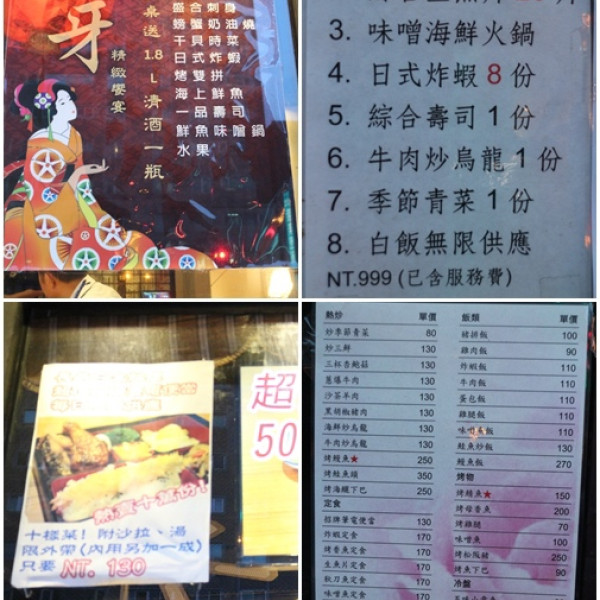 牙
精緻饗宴
桌送1.8L清酒一瓶
3. 味噌海鮮火鍋
4. 日式炸蝦 8 份
5. 綜合壽司 1 份
6. 牛肉炒烏龍 1 份
7. 季節青菜 1 份
8. 白飯無限供應
NT.999 (已含服務費)
熱賣十萬份!
十樣菜!附沙拉、湯
限外帶(內用另加一成)
只要 NT. 130
超
50
熱炒 單價
炒季節青菜 80
炒三鮮 130
三杯杏鮑菇 130
蔥爆牛肉 130
沙茶羊肉 130
黑胡椒豬肉 130
海鮮炒烏龍 130
牛肉炒烏龍 130
烤鰻魚★ 250
烤鮭魚頭 350
烤海鱺下巴 250
定食
招牌筆電便當 130
炸蝦定食 170
烤香魚定食 170
生魚片定食 170
秋刀魚定食 170
味噌魚定食 170
飯類 單價
豬排飯 100
雞肉飯 90
炸蝦飯 110
牛肉飯 110
蛋包飯 110
雞腿飯 110
味噌魚飯 110
鮭魚炒飯 130
鰻魚飯 270
烤物
烤鯖魚★ 150
烤母香魚 200
烤雞腿 70
味噌魚 100
烤松阪豬 250
烤魚下巴 90
冷盤